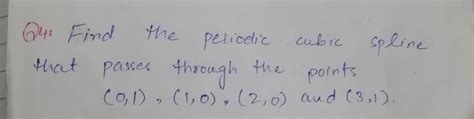 Q4: Find the periodic cubic spline
that passes through the points
(0,1), (1,0), (2,0) and (3,1).